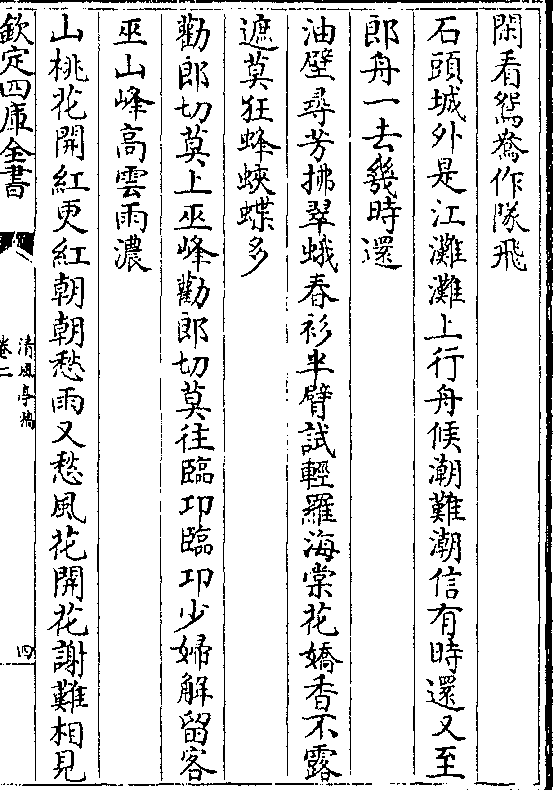 閑看鴛鴦作隊飛
石頭城外是江灘灘上行舟候潮難潮信有時還又至
郎舟一去幾時還
油壁尋芳拂翠蛾春衫半臂試輕羅海棠花嬌香不露
遮莫狂蜂蛺蝶多
勸郎切莫上巫峰勸郎切莫往臨邛臨邛少婦解留客
巫山峰高雲雨濃
山桃花開紅更紅朝朝愁雨又愁風花開花謝難相見
欽定四庫全書
清風亭稿
卷二
四